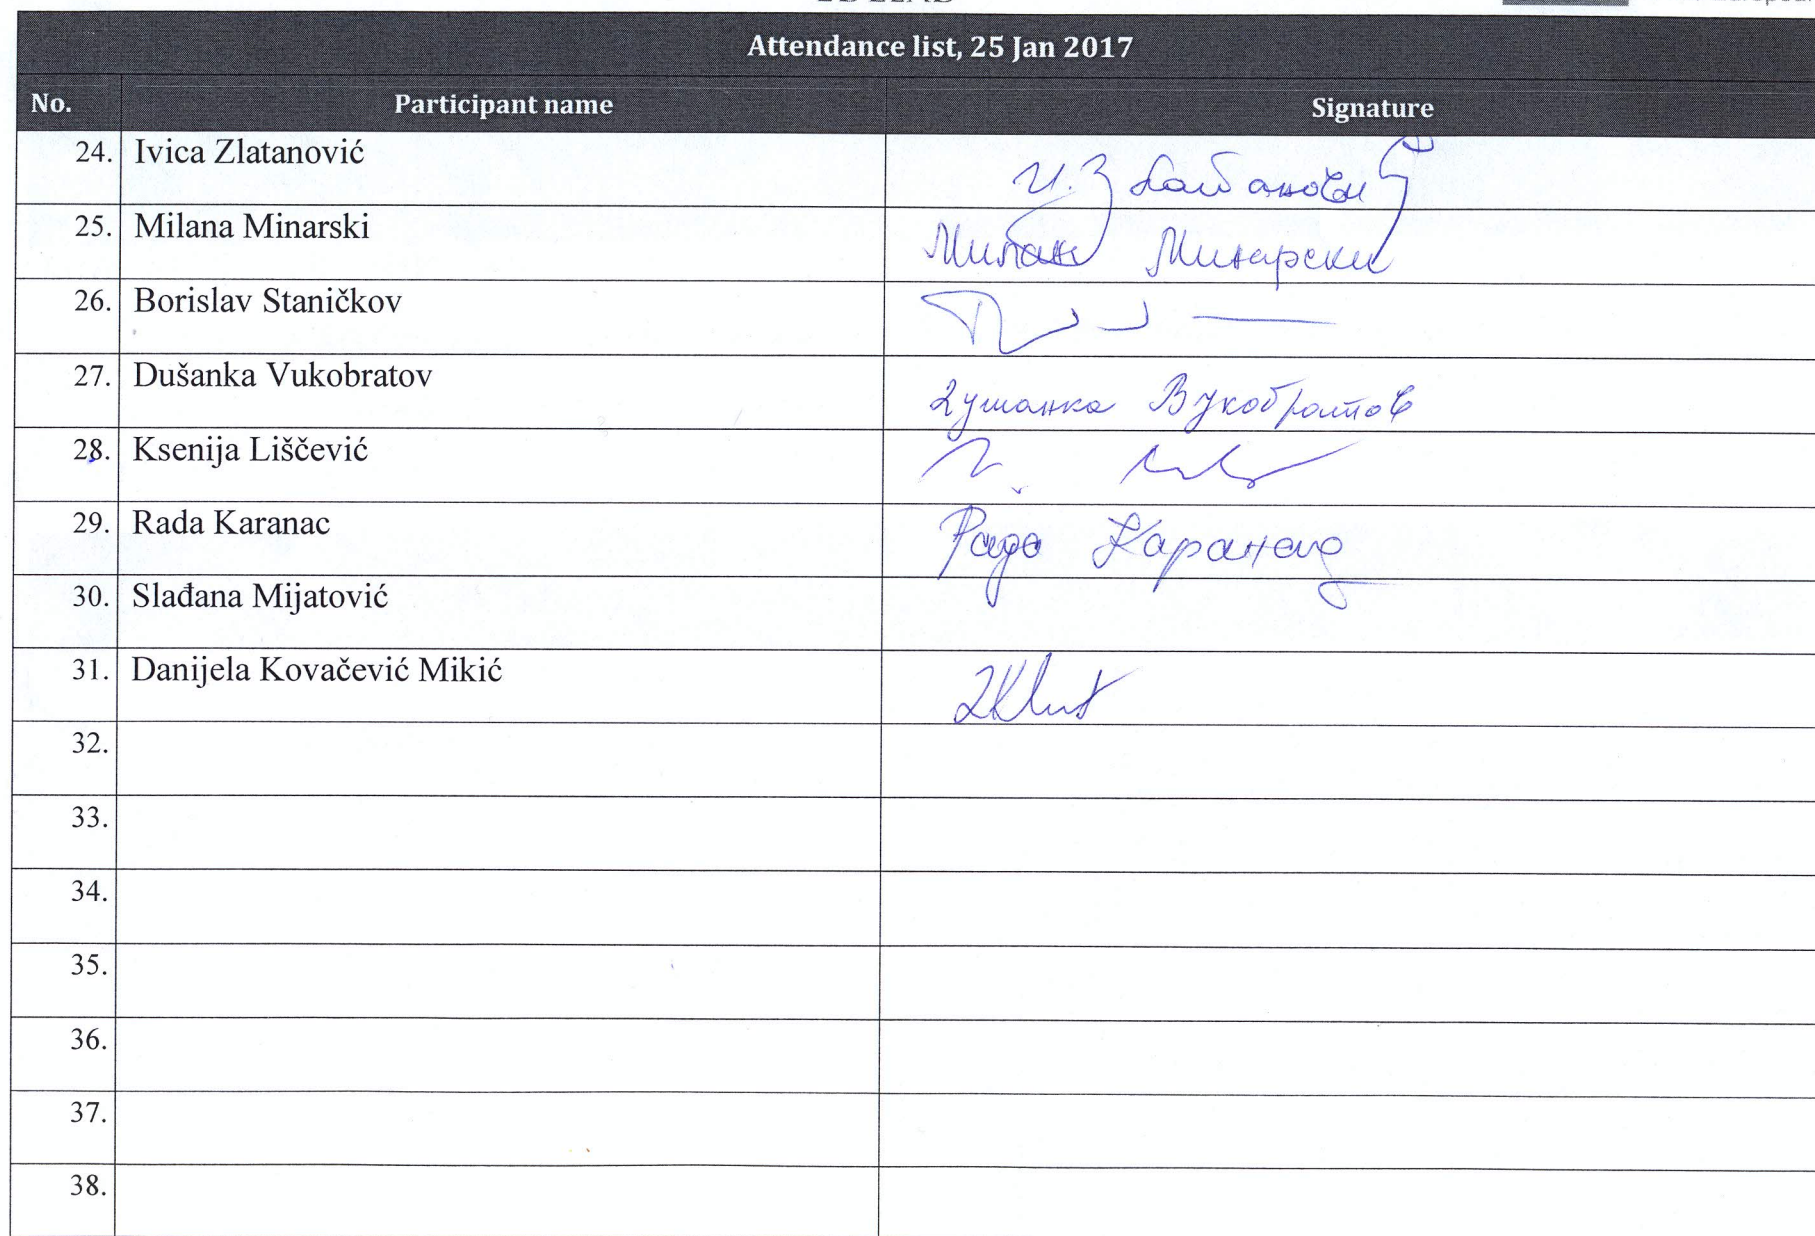 Attendance list, 25 Jan 2017
No. Participant name Signature
24. Ivica Zlatanović И. Златановић
25. Milana Minarski Милана Минарски
26. Borislav Staničkov
27. Dušanka Vukobratov Душанка Вукобратов
28. Ksenija Liščević
29. Rada Karanac Рада Каранац
30. Slađana Mijatović
31. Danijela Kovačević Mikić
32.
33.
34.
35.
36.
37.
38.